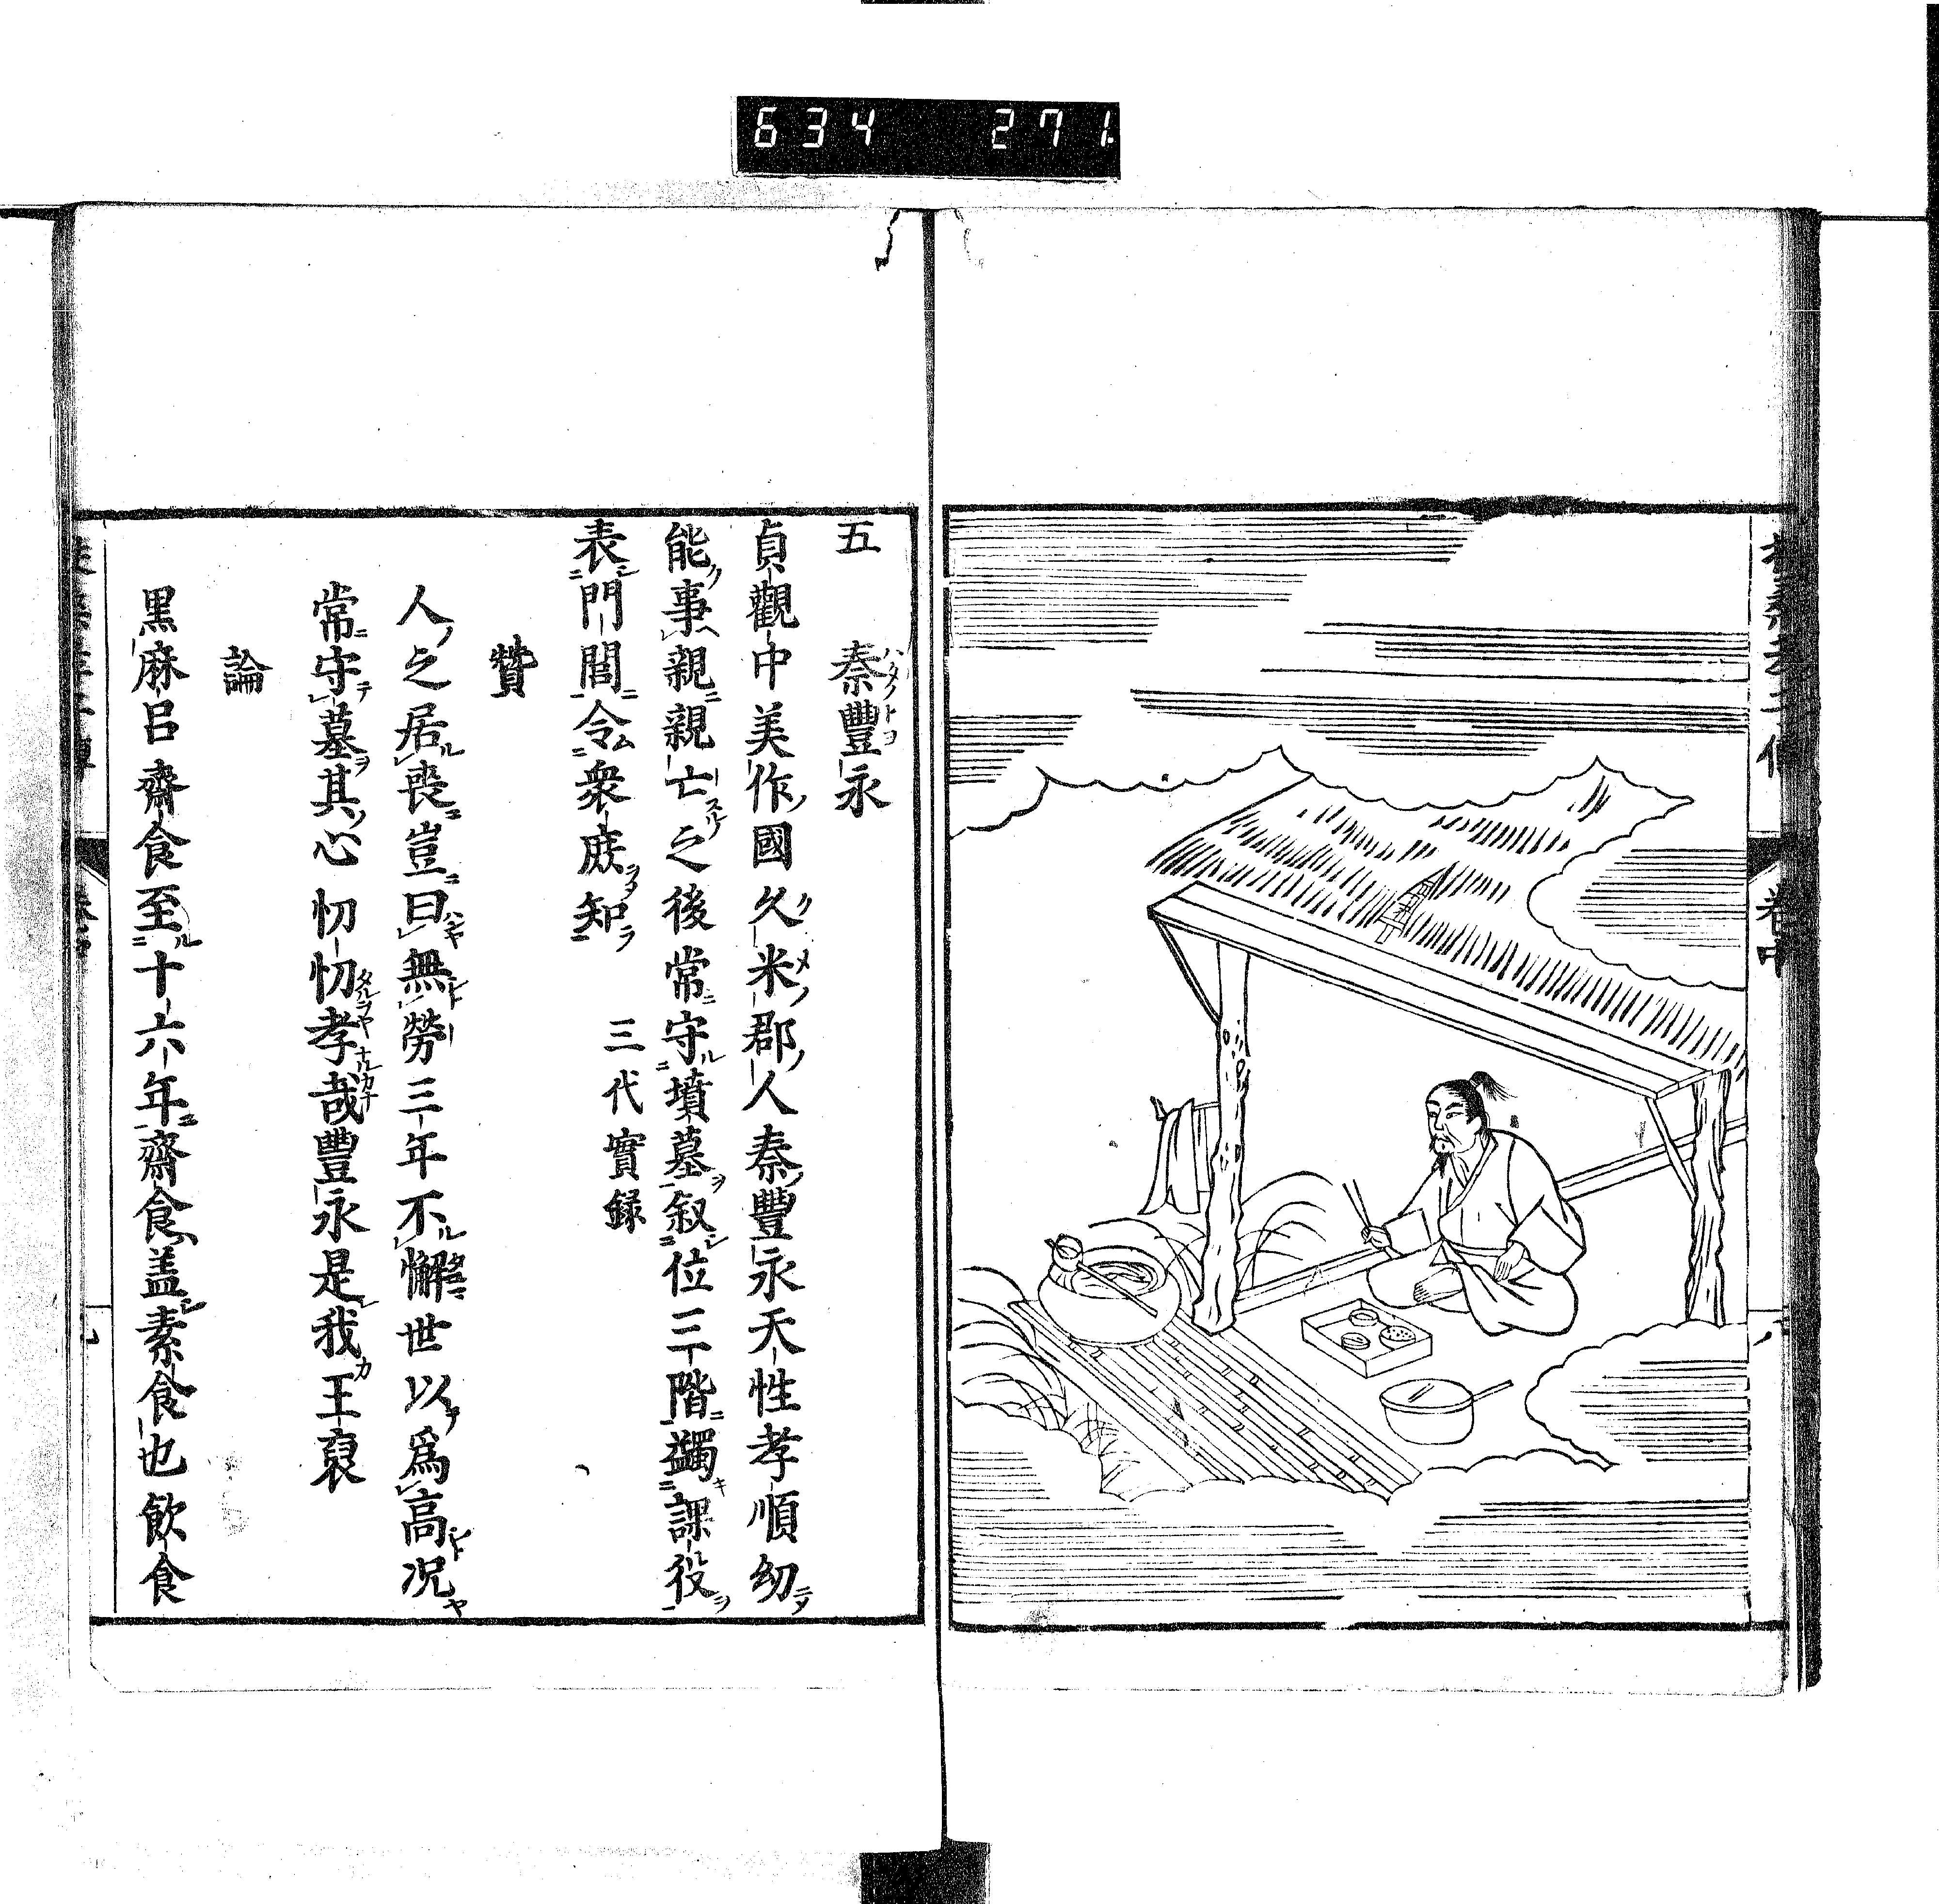 634 271
卷中
五 秦豐永
ハタノトヨ
貞觀中美作國久米郡人秦豐永天性孝順幼
能事親親亡之後常守墳墓叙位三階蠲課役
表門閭令衆庶知 三代實録
賛
人之居喪豈曰無勞三年不懈世以爲高况
常守墓其心忉忉孝哉豐永是我王裒
論
黒麻呂齋食至十六年齋食盖素食也飲食